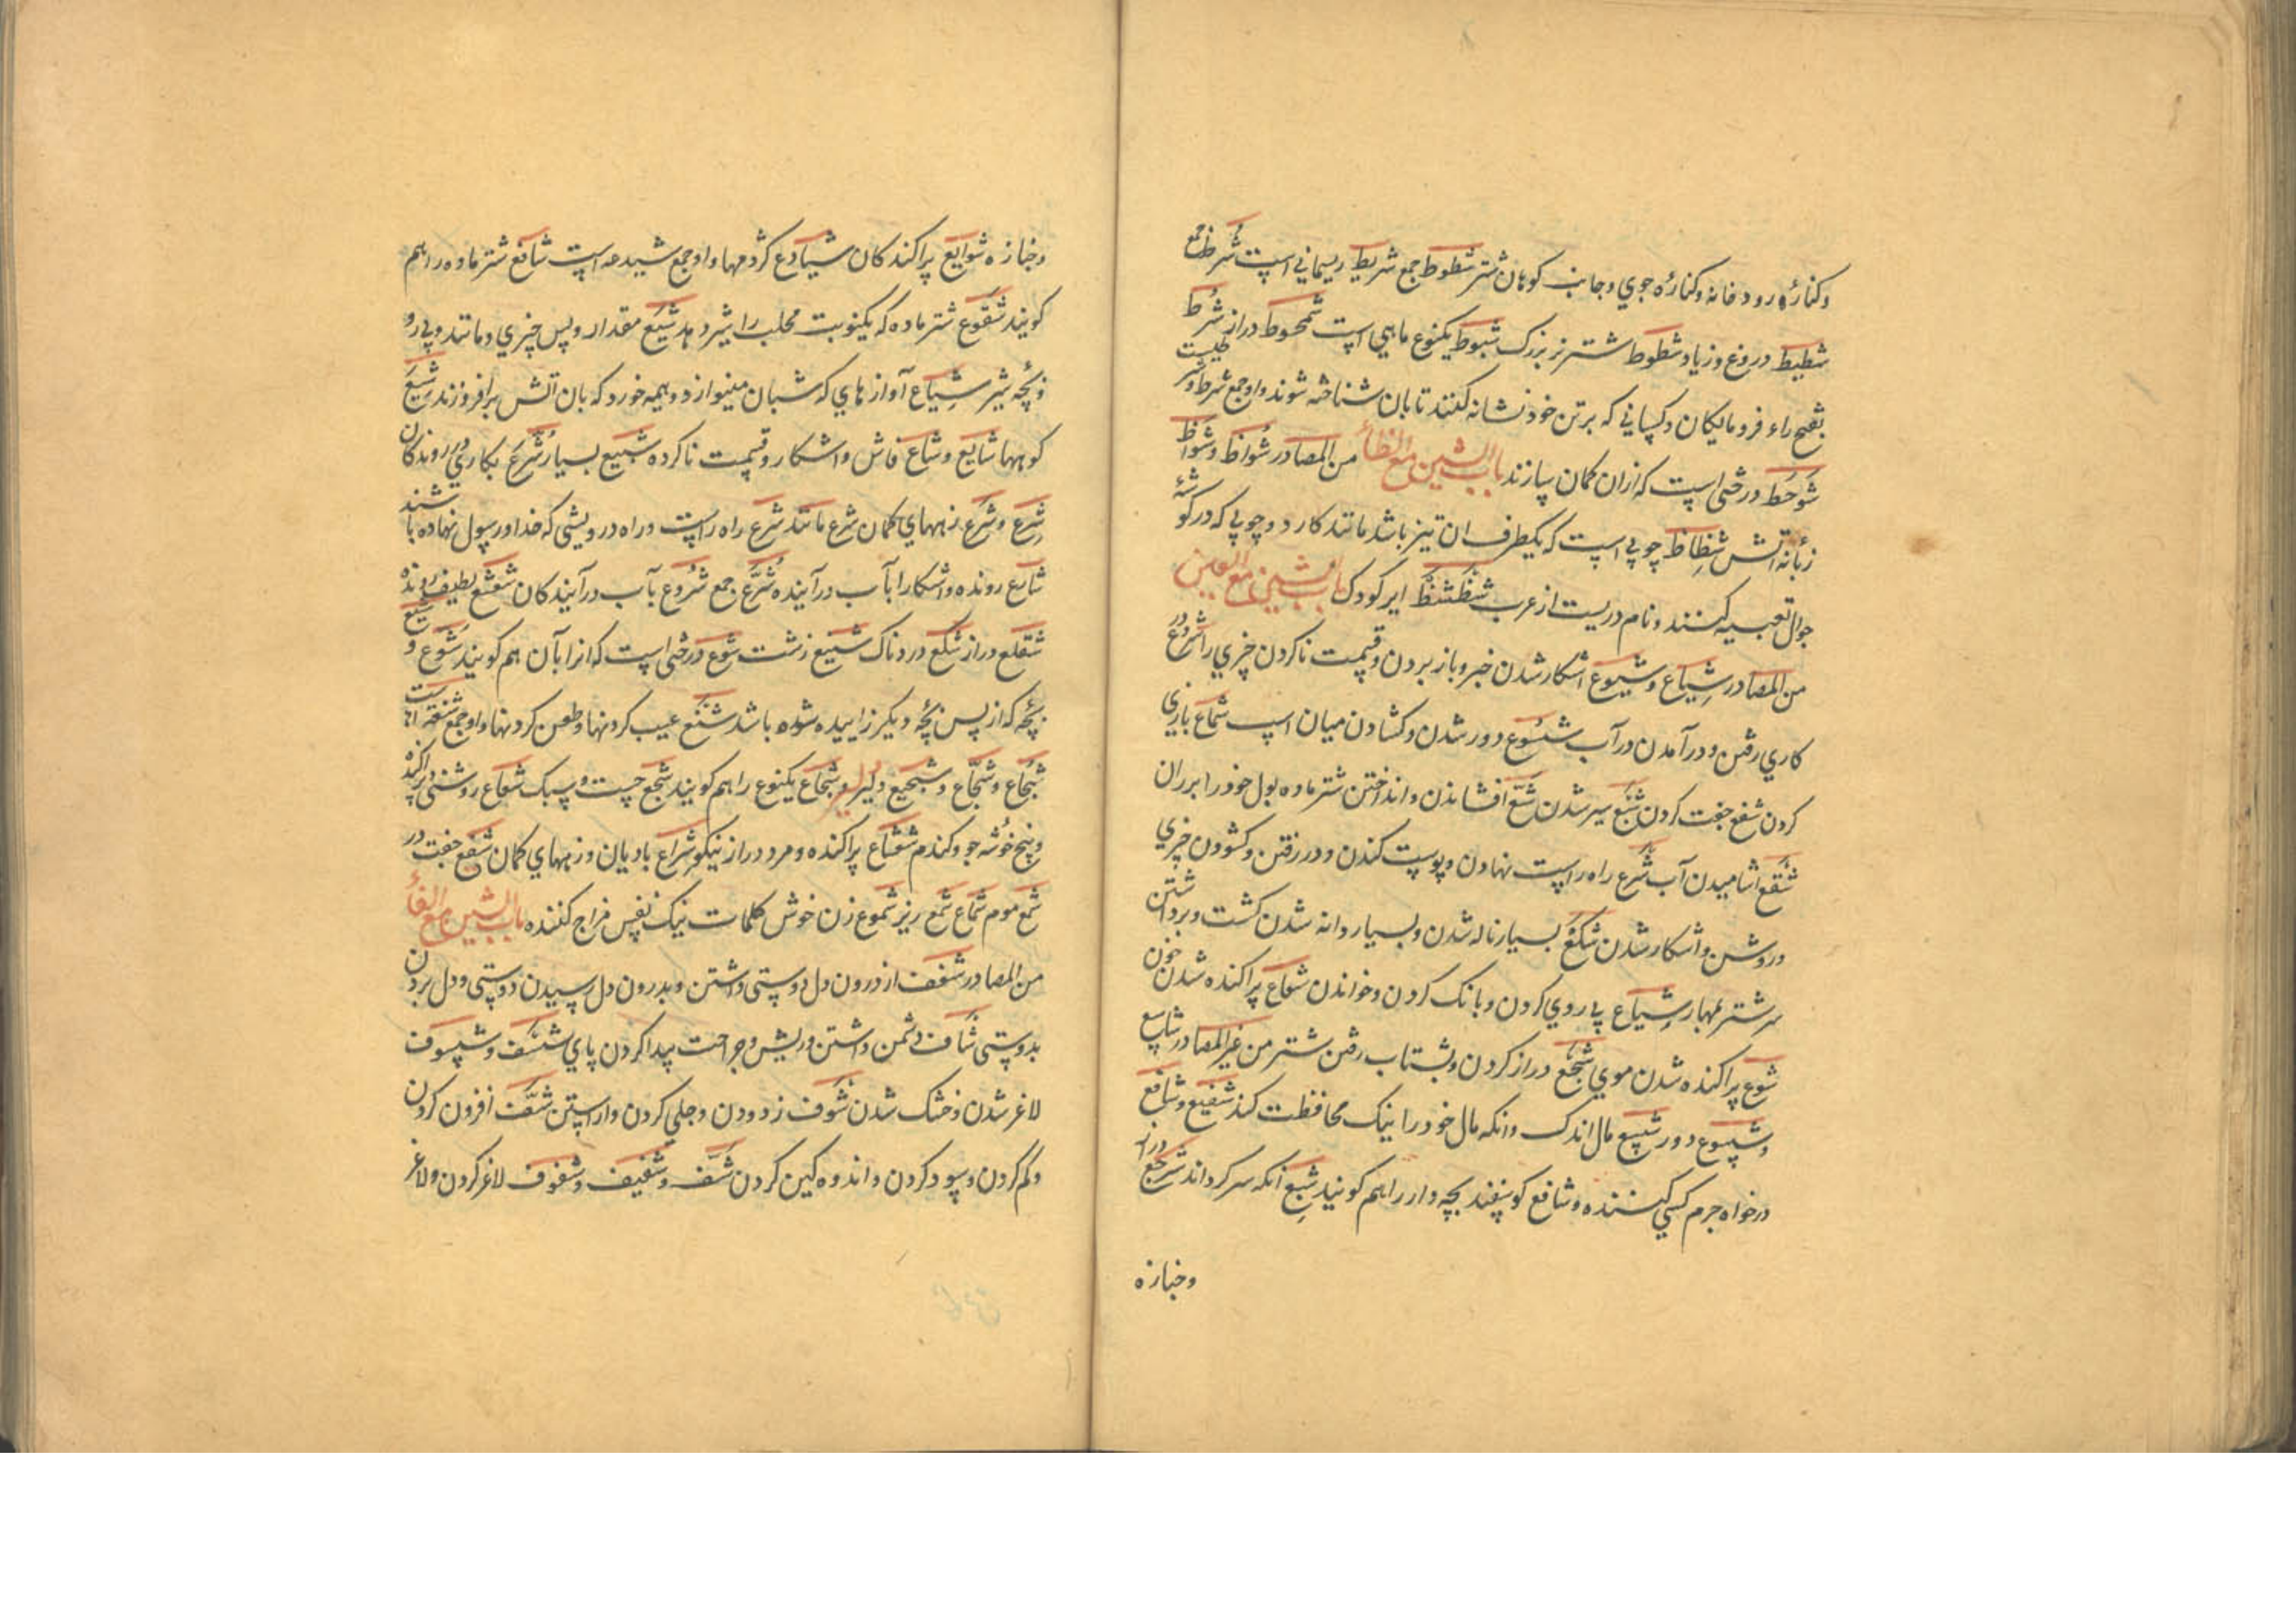 وکنارۀ رودخانه وکنارۀ جوی وجانب کوهان شتر شطوط جمع شریط ریسمانی است شرط جمع
شطیط دروغ وزیاد شطوط شتر نر بزرک شبوط یکنوع ماهی است شمحوط دراز شرط
بفتح راء فرومایکان وکسانی که برتن خود نشانه کنند تا بان شناخته شوند واو جمع شرطیست
شوحط درختی است که ازان کمان سازند باب الشین مع الظاء من المصادر شواظ وشواظ
زبانه آتش شظاظ چوبی است که یکطرف ان تیز باشد مانند کارد و چوبی که درکوشۀ
جوال تعبیه کنند ونام دزدیست از عرب شظشظ ایر کودک باب الشین مع العین
من المصادر شیاع وشیوع اشکار شدن خبر وباز بردن وقیمت ناکردن چیزی را شروع در
کاری رفتن ودرآمدن درآب شسوع دور شدن وکشادن میان اسپ شماع بازی
کردن شفع جفت کردن شبع سیر شدن شع افشاندن وانداختن شتر ماده بول خود را بر ران
شقع اشامیدن آب شرع راه راست نهادن وپوست کندن ودر رفتن وکشودن چیزی
وروشن واشکار شدن شکع بسیار ناله شدن وبسیار دانه شدن کشت وبرداشتن
سر شتر بمهار شیاع پی روی کردن وبانک کردن وخواندن شعاع پراکنده شدن خون
شوع پراکنده شدن موی شجع دراز کردن وبشتاب رفتن شتر من غیر المصادر شاسع
وشسوع دور شسع مال اندک وانکه مال خود را نیک محافظت کند شفیع وشافع
درخواه جرم کسی کننده وشافع کوسفند بچه دار را هم کویند شبع انکه سرکرداند شرجع دراز
وجنازه
وجنازه شوایع پراکندکان شیادع کژدمها واو جمع شیدعه است شافع شتر ماده را هم
کویند شفوع شتر ماده که یکنوبت محلب را شیر دهد شیع مقدار وپس چیزی ومانند وپی رو
وبچۀ شیر شیاع آواز های که شبان مینوازد وهیمه خورد که بان آتش برافروزند شیع
کوهها شایع وشاع فاش واشکار وقیمت ناکرده شبیع بسیار شرع بکاری در روندکان
شرع وشرع زههای کمان شرع مانند شرع راه راست وراه درویشی که خدا ورسول نهاده باشند
شارع رونده واشکارا بآب درآینده شرع جمع شروع بآب درآیندکان شعشع لطیف رونده
شقلع دراز شکع دردناک شنیع زشت شوع درختی است که انرا بان هم کویند شوع وشیع
بچه که از پس بچۀ دیکر زاییده شوده باشد شنع عیب کردنها وطعن کردنها واو جمع شنعه است
شجاع وشجاع وشجیع دلیر وشجاع یکنوع مار را هم کویند شجع چست وسبک شعاع روشنی پراکنده
وسیخ خوشه جو وکندم شعشاع پراکنده ومرد دراز نیکو شراع بادبان وزههای کمان شفع جفت در
شمع موم شماع شمع ریز شموع زن خوش کلمات نیک نفس مزاج کننده باب الشین مع الفاء
من المصادر شغف از درون دل دوستی داشتن وبدرون دل رسیدن دوستی ودل بردن
بدوستی شأف دشمن داشتن وریش وجراحت پیدا کردن پای شسف وشسوف
لاغر شدن وخشک شدن شوف زدودن وجلی کردن واراستن شف افزون کردن
وکم کردن وسود کردن واندوه کین کردن شف وشفیف وشفوف لاغر کردن ولاغر